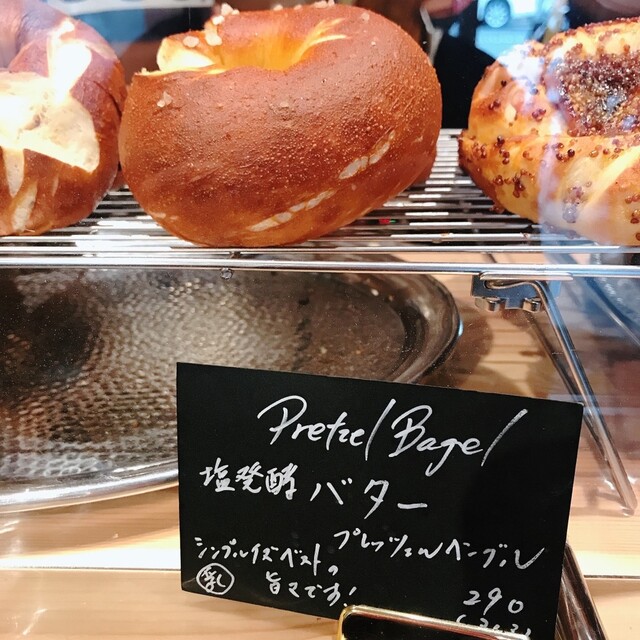 Pretzel Bagel
塩発酵 バター
プレッツェルベーグル
シンプルイズベストの
旨さです!
乳
290